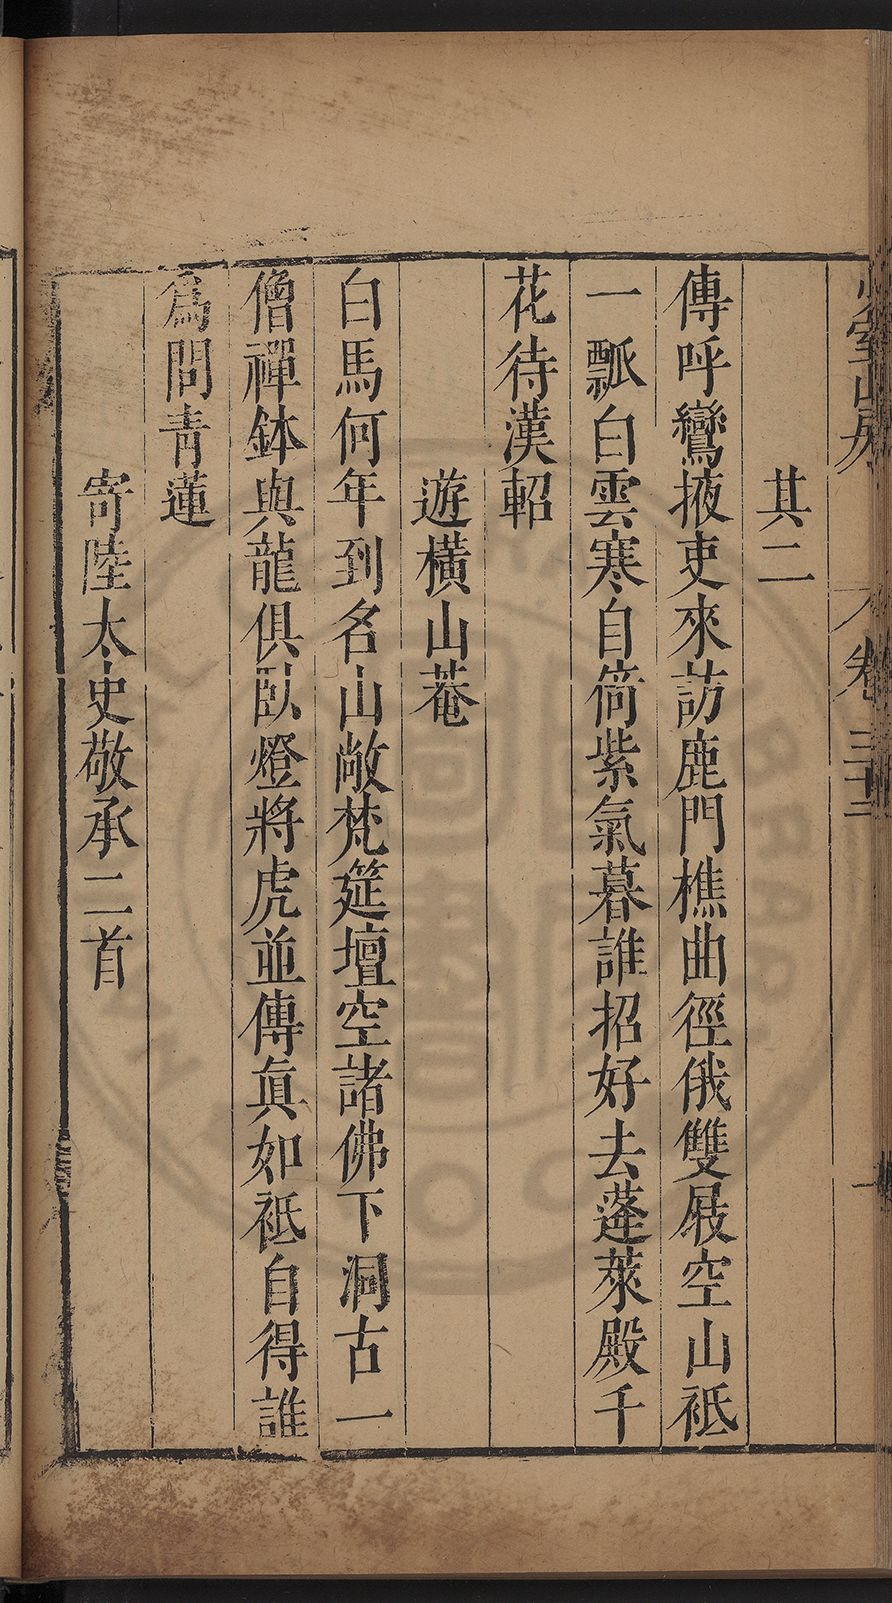 少室山房
卷三十二
一
其二
傳呼鸞掖吏來訪鹿門樵曲徑俄雙屐空山祗
一瓢白雲寒自倚紫氣暮誰招好去蓬萊殿千
花待漢軺
遊橫山菴
白馬何年到名山敞梵筵壇空諸佛下洞古一
僧禪鉢與龍俱臥燈將虎並傳眞如祗自得誰
爲問青蓮
寄陸太史敬承二首